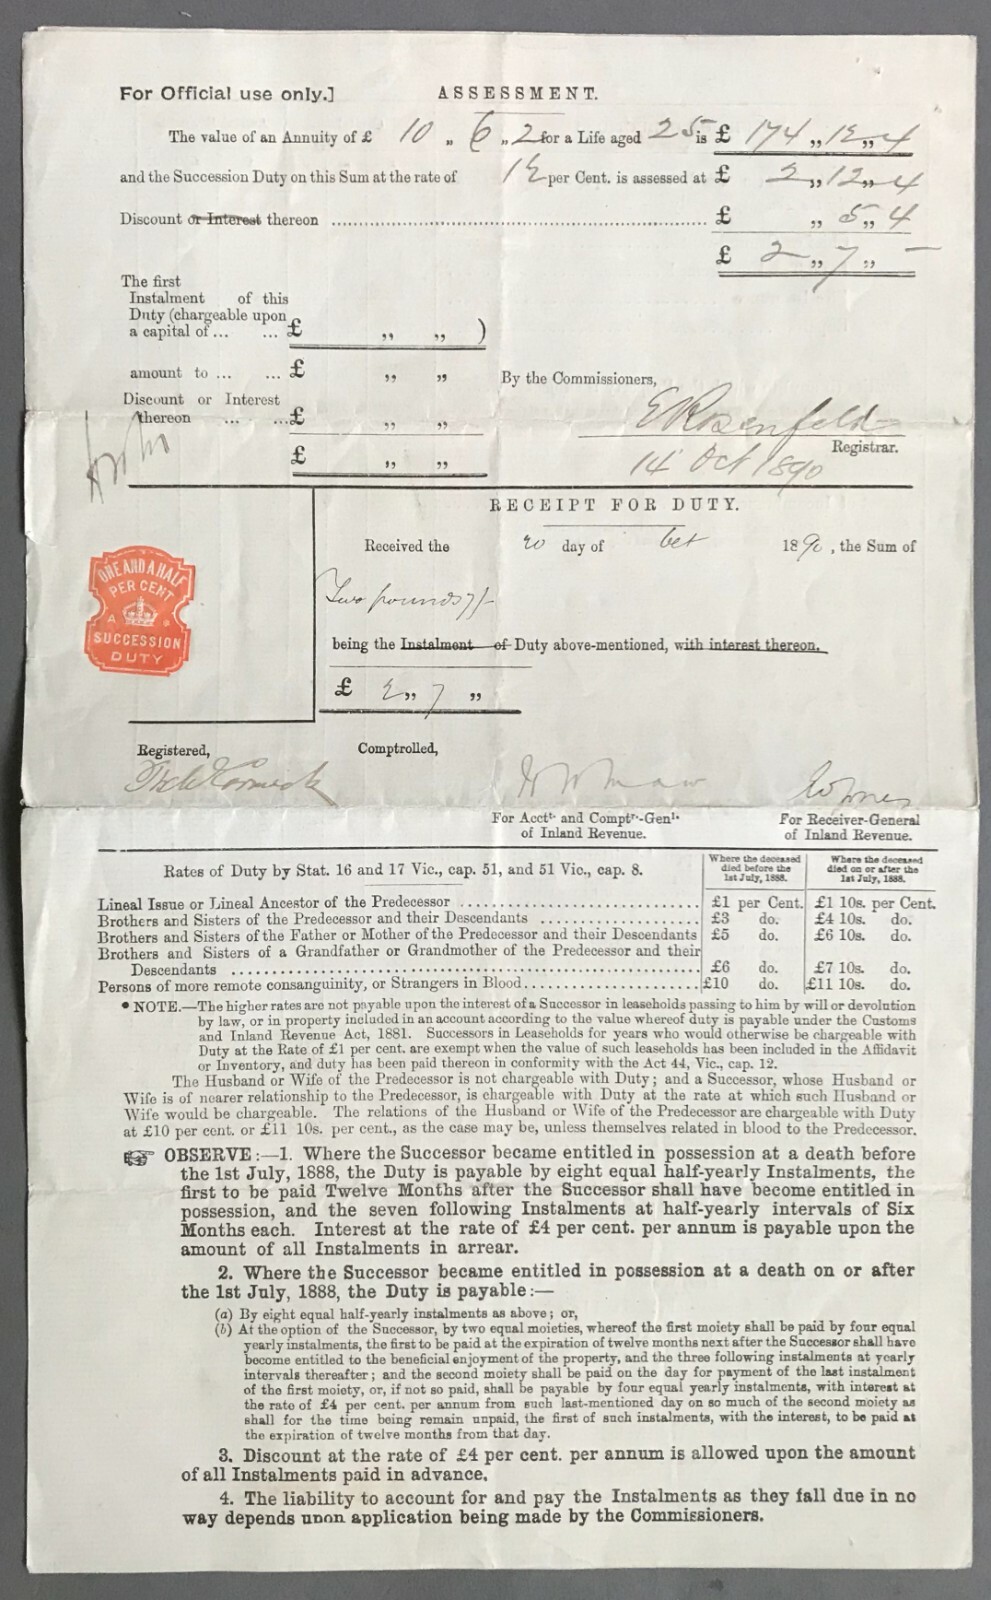 For Official use only.]
ASSESSMENT.
The value of an Annuity of £ 10 „ 6 „ 2 for a Life aged 25 is £ 174 „ 12 „ 4
and the Succession Duty on this Sum at the rate of 1½ per Cent. is assessed at £ 2 „ 12 „ 4
Discount or Interest thereon £ „ 5 „ 4
£ 2 „ 7 „ -
The first
Instalment of this
Duty (chargeable upon
a capital of ... ... £ „ „ )
amount to ... ... £ „ „
By the Commissioners,
Discount or Interest
thereon ... ... £ „ „
E Rosenfeld
Registrar.
£ „ „
14 Oct 1890
RECEIPT FOR DUTY.
Received the 20 day of Oct 1890, the Sum of
Two pounds 7/-
being the Instalment of Duty above-mentioned, with interest thereon.
£ 2 „ 7 „
ONE AND A HALF
PER CENT
A
SUCCESSION
DUTY
Registered,
Comptrolled,
For Acctt. and Comptr.-Genl.
of Inland Revenue.
For Receiver-General
of Inland Revenue.
Rates of Duty by Stat. 16 and 17 Vic., cap. 51, and 51 Vic., cap. 8.
Where the deceased
died before the
1st July, 1888.
Where the deceased
died on or after the
1st July, 1888.
Lineal Issue or Lineal Ancestor of the Predecessor £1 per Cent. £1 10s. per Cent.
Brothers and Sisters of the Predecessor and their Descendants £3 do. £4 10s. do.
Brothers and Sisters of the Father or Mother of the Predecessor and their Descendants £5 do. £6 10s. do.
Brothers and Sisters of a Grandfather or Grandmother of the Predecessor and their
Descendants £6 do. £7 10s. do.
Persons of more remote consanguinity, or Strangers in Blood £10 do. £11 10s. do.
• NOTE.—The higher rates are not payable upon the interest of a Successor in leaseholds passing to him by will or devolution
by law, or in property included in an account according to the value whereof duty is payable under the Customs
and Inland Revenue Act, 1881. Successors in Leaseholds for years who would otherwise be chargeable with
Duty at the Rate of £1 per cent. are exempt when the value of such leaseholds has been included in the Affidavit
or Inventory, and duty has been paid thereon in conformity with the Act 44, Vic., cap. 12.
The Husband or Wife of the Predecessor is not chargeable with Duty; and a Successor, whose Husband or
Wife is of nearer relationship to the Predecessor, is chargeable with Duty at the rate at which such Husband or
Wife would be chargeable. The relations of the Husband or Wife of the Predecessor are chargeable with Duty
at £10 per cent. or £11 10s. per cent., as the case may be, unless themselves related in blood to the Predecessor.
☞ OBSERVE:—1. Where the Successor became entitled in possession at a death before
the 1st July, 1888, the Duty is payable by eight equal half-yearly Instalments, the
first to be paid Twelve Months after the Successor shall have become entitled in
possession, and the seven following Instalments at half-yearly intervals of Six
Months each. Interest at the rate of £4 per cent. per annum is payable upon the
amount of all Instalments in arrear.
2. Where the Successor became entitled in possession at a death on or after
the 1st July, 1888, the Duty is payable:—
(a) By eight equal half-yearly instalments as above; or,
(b) At the option of the Successor, by two equal moieties, whereof the first moiety shall be paid by four equal
yearly instalments, the first to be paid at the expiration of twelve months next after the Successor shall have
become entitled to the beneficial enjoyment of the property, and the three following instalments at yearly
intervals thereafter; and the second moiety shall be paid on the day for payment of the last instalment
of the first moiety, or, if not so paid, shall be payable by four equal yearly instalments, with interest at
the rate of £4 per cent. per annum from such last-mentioned day on so much of the second moiety as
shall for the time being remain unpaid, the first of such instalments, with the interest, to be paid at
the expiration of twelve months from that day.
3. Discount at the rate of £4 per cent. per annum is allowed upon the amount
of all Instalments paid in advance.
4. The liability to account for and pay the Instalments as they fall due in no
way depends upon application being made by the Commissioners.